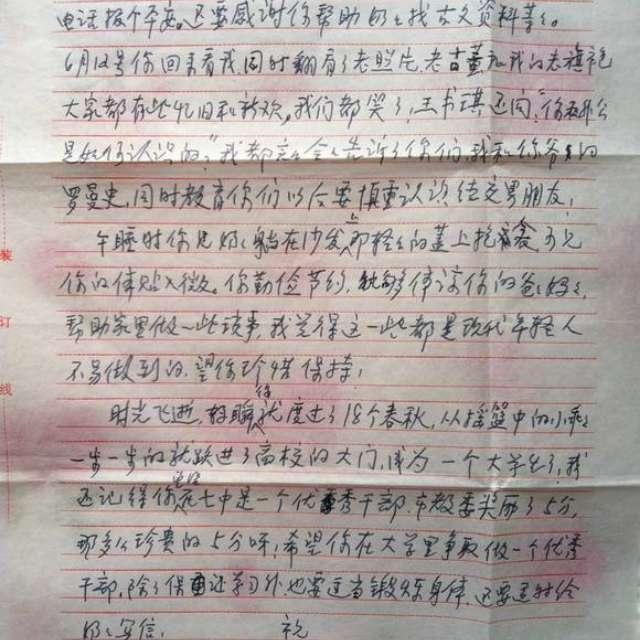 电话报个平安。还要感谢你帮助奶奶找古久资料等等。
6月12号你回来看我,同时翻看了老照片,老古董和我的老旗袍
大家都有些忆旧和新欢。我们都笑了,王书琪还问:"你和爷爷
是如何认识的"我都一告诉了你们,我和你爷爷的
罗曼史,同时教育你们以今要慎重认识结交男朋友;
午睡时你见奶奶躺在沙发上即轻轻的盖上, 可见
你的体贴入微。你勤俭节约,能够体谅你的爸爸妈妈,
帮助家里做一些琐事,我觉得这一些都是现代年轻人
不易做到的,望你珍惜保持;
时光飞逝,转瞬度过了18个春秋,从摇篮中的小乖乖
一步一步的就跃进了高校的大门,成为一个大学生了,我
还记得你在七中是一个优秀干部,市教委奖励了5分,
那多么珍贵的5分呀!希望你在大学里争取做一个优秀
干部,除了保证学习外也要适当锻炼身体,还要适时给
奶奶写信, 祝
装
订
线